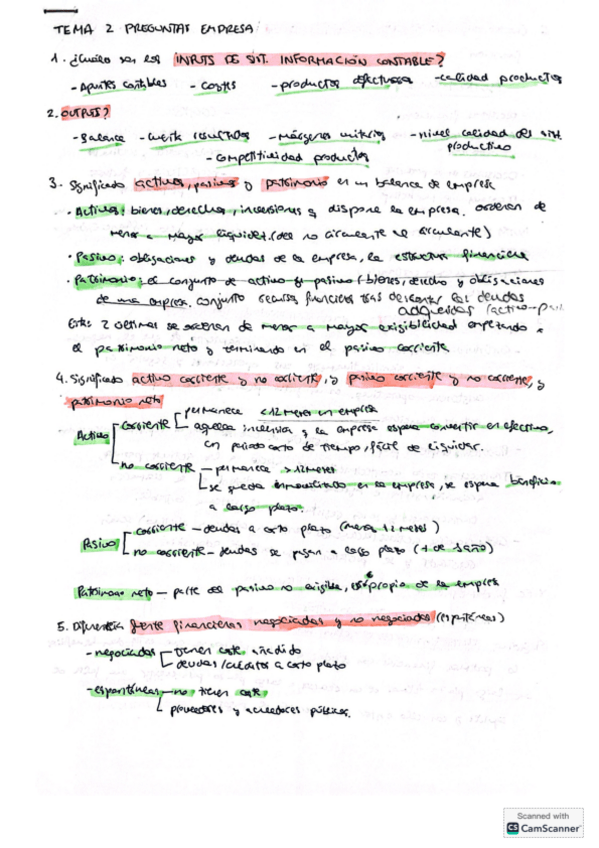 TEMA 2 PREGUNTAS EMPRESA:
1. ¿Cuáles son los INPUTS DE SIST. INFORMACIÓN CONTABLE?
- Apuntes contables - Costes - productos defectuosos - calidad productos
2. OUTPUTS?
- Balance - cuenta resultados - Márgenes unitarios - nivel calidad del sist. productivo
- Competitividad productos
3. Significado activo, pasivo y patrimonio en un balance de empresa
· Activo: bienes, derechos, inversiones q dispone la empresa. ordenan de
menor a mayor liquidez. (del no circulante al circulante)
· Pasivo: obligaciones y deudas de la empresa, la estructura financiera
· Patrimonio: el conjunto de activo y pasivo (bienes, derecho y obligaciones
de una empresa. conjunto recursos financieros tras descontar las deudas
adquiridas (activo-pasi
Estos 2 ultimos se ordenan de menor a mayor exigibilidad empezando x
el patrimonio neto y terminando en el pasivo corriente
4. Significado activo corriente y no corriente, y pasivo corriente y no corriente, y
patrimonio neto
Activo corriente permanece <12 meses en empresa
aquella inversión q la empresa espera convertir en efectivo,
en periodo corto de tiempo, fácil de liquidar.
no corriente - permanece >12 meses
se queda inmovilizado en la empresa, se espera beneficio
a largo plazo.
Pasivo corriente - deudas a corto plazo (menos 12 meses)
no corriente - deudas se pagan a largo plazo (+ de 1 año)
Patrimonio neto - parte del pasivo no exigible, es propio de la empresa
5. Diferencia fuente financieras negociadas y no negociadas (espontáneas)
- negociadas tienen coste añadido
deudas/créditos a corto plazo
- espontáneas - no tienen coste
proveedores y acreedores públicos.
Scanned with
CS CamScanner